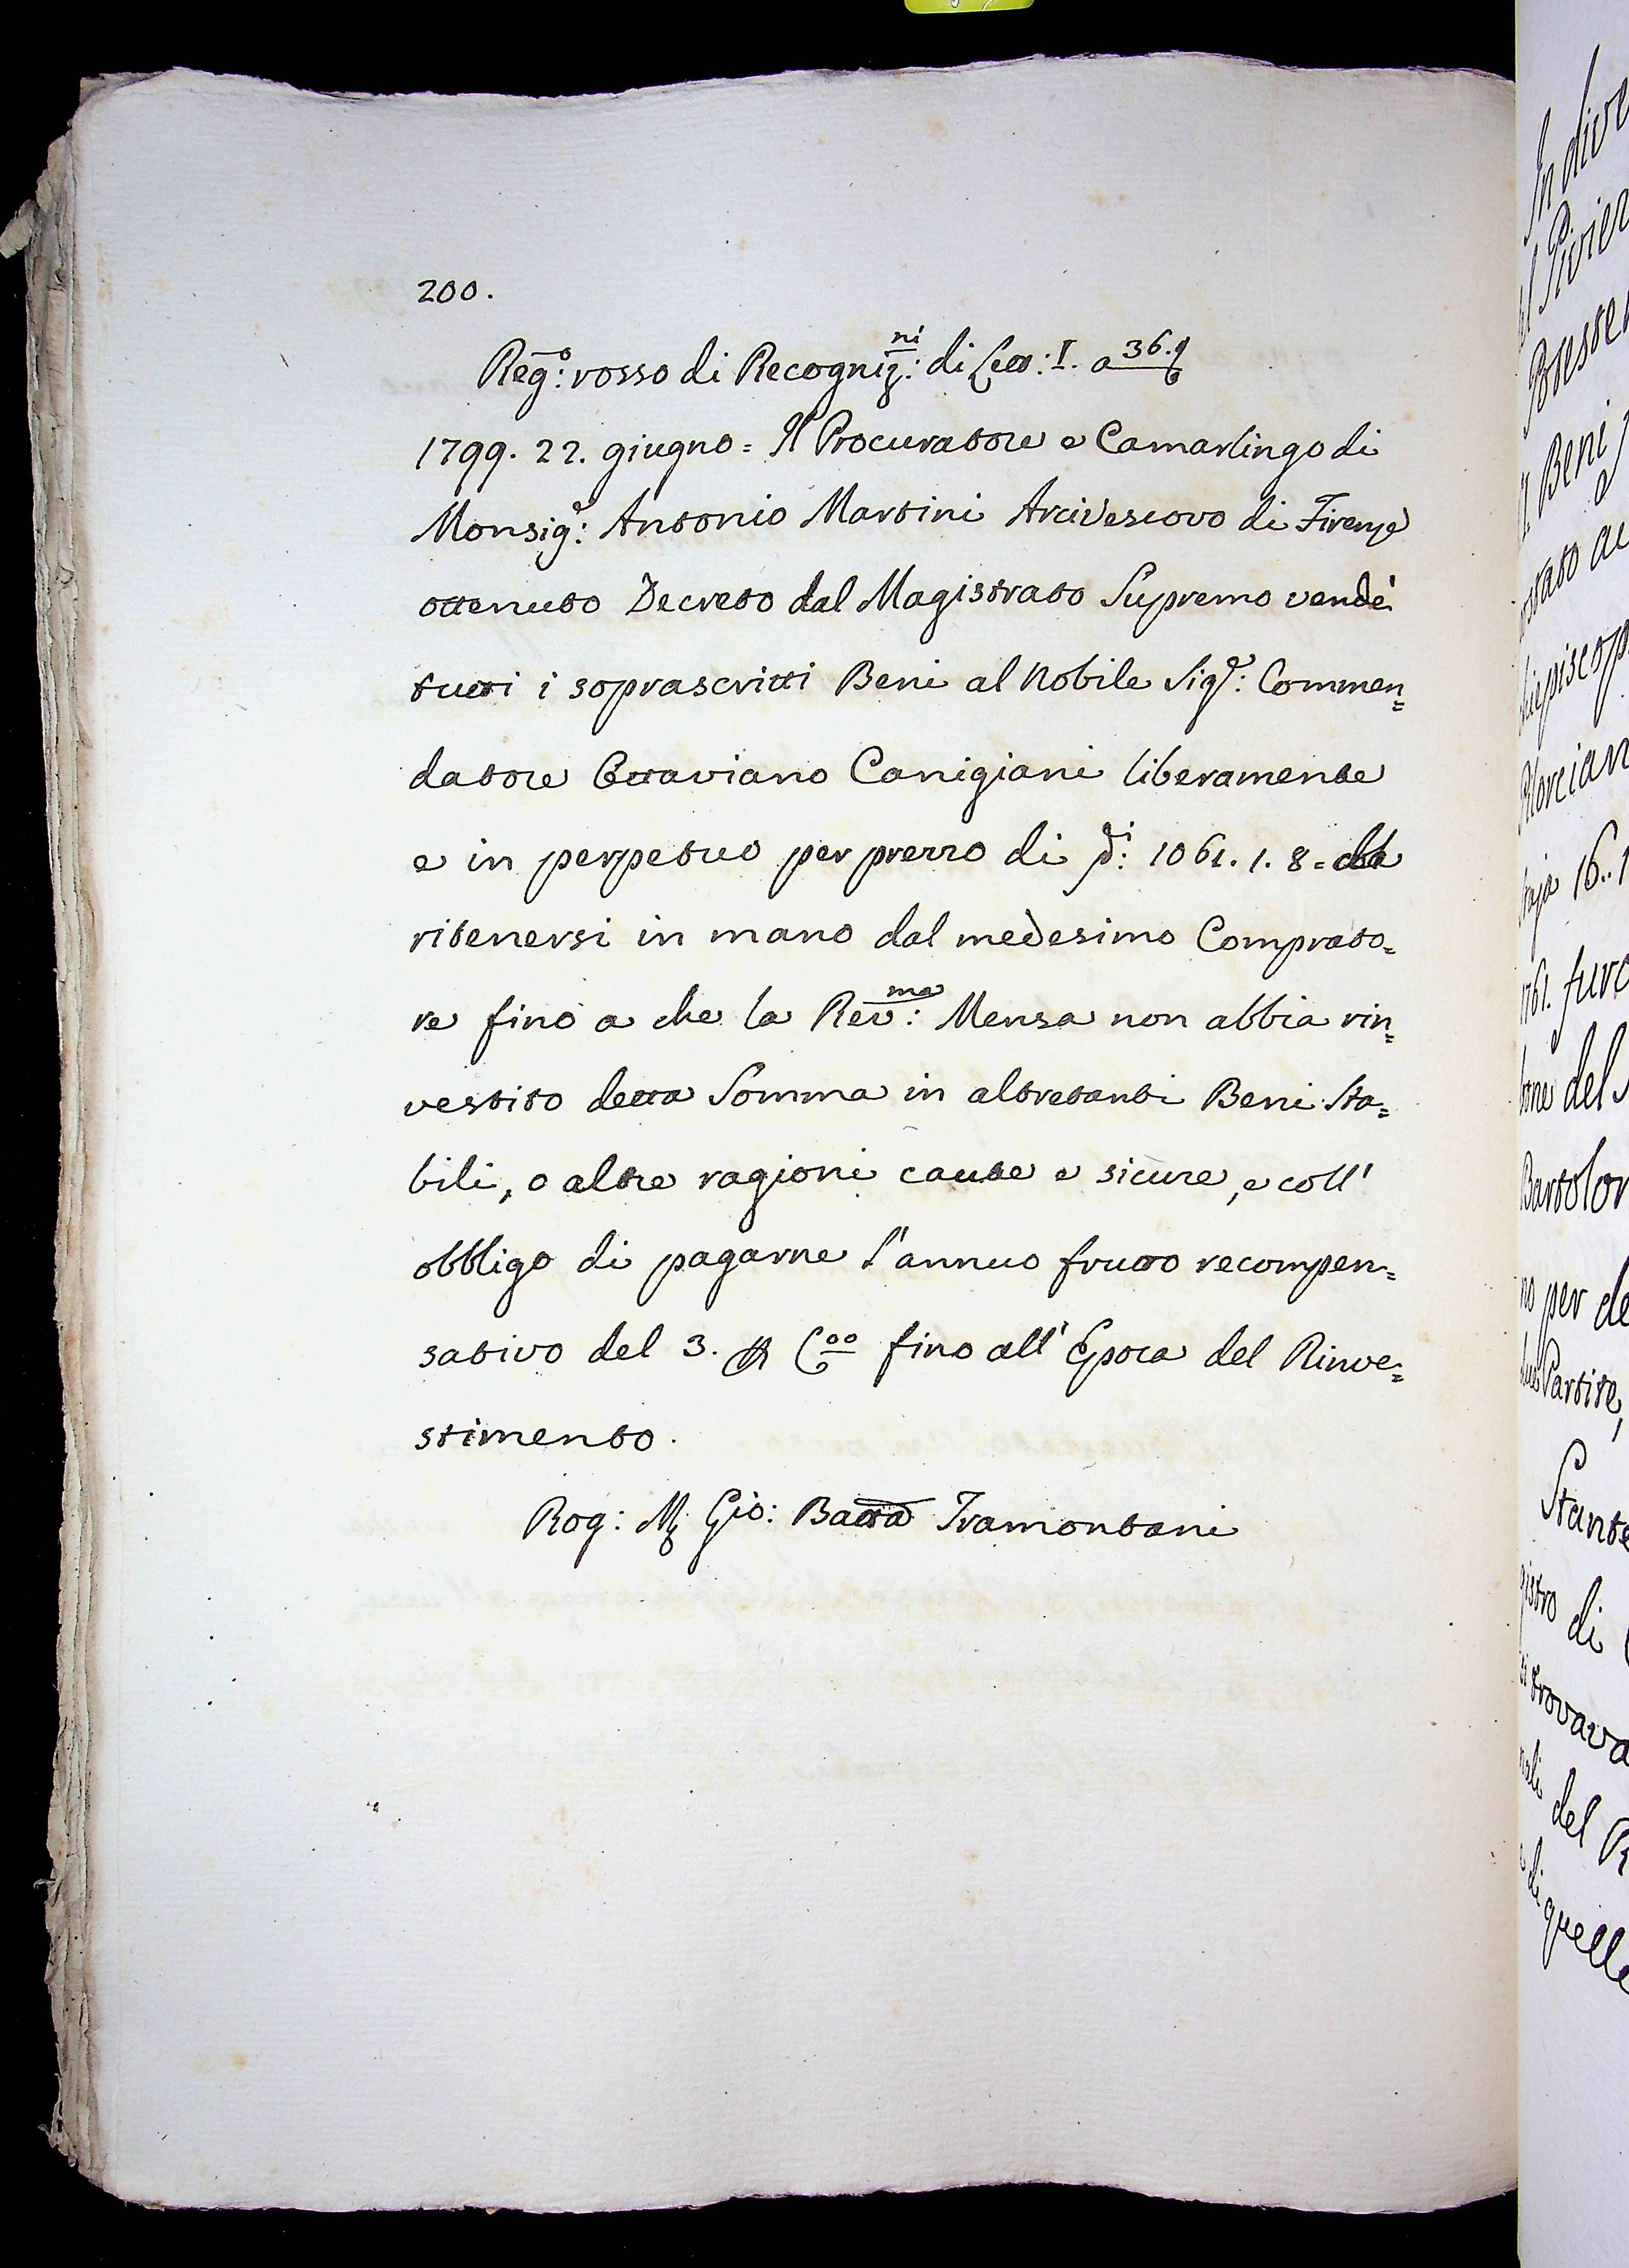 200.
Reg:º rosso di Recogniz:ni di Lett: I. a 36.
1799. 22. giugno = Il Procuratore e Camarlingo di
Monsig:e Antonio Martini Arcivescovo di Firenze
ottenuto Decreto dal Magistrato Supremo vendè
tutti i soprascritti Beni al Nobile Sig:e Commen=
datore Ottaviano Canigiani liberamente
e in perpetuo per prezzo di 1061. 1. 8 = da
ritenersi in mano dal medesimo Comprato=
re fino a che la Rev:ma Mensa non abbia rin=
vestito detta Somma in altretanti Beni Sta=
bili, o altre ragioni caute e sicure, e coll'
obbligo di pagarne l'annuo frutto recompen=
sativo del 3. fino all'Epoca del Rinve=
stimento.
Rog: M Gio: Batta Tramontani
In dive
Beni
16..1
1761.
del
Bartolom
no per de
Partite,
Stante
di
trovava
del R
di quelle